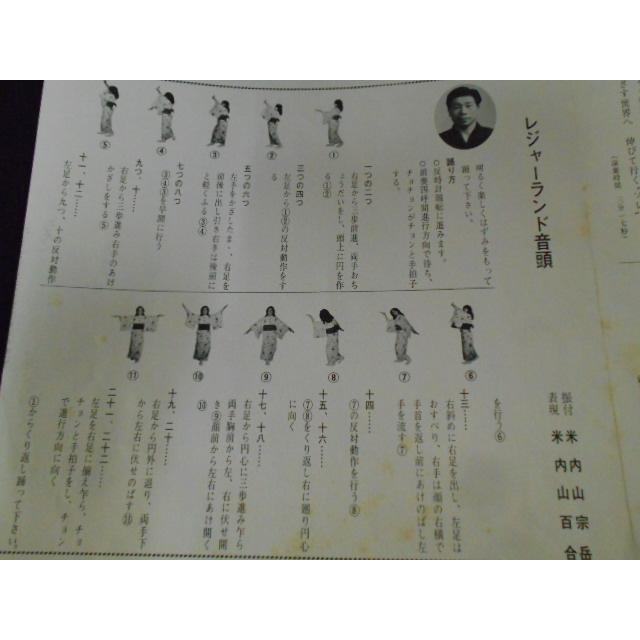 す世界へ 伸びて行く
レジャーランド音頭
振付 米内山宗岳
表現 米内山百合
明るく楽しくはずみをもって
踊って下さい。
踊り方
○反時計廻転に進みます。
○前奏四呼間進行方向で待ち、
チョチョンがチョンと手拍子
する。
一つの二つ
右足から三歩前進、両手おち
ょうだいをし、頭上に円を作
る①②
三つの四つ
左足から①②の反対動作をす
る
五つの六つ
左手をかざしたまゝ、右足を
前後に出し引き右手は後前に
と軽くふる③④
七つの八つ
③④③を早間に行う
九つ、十……
右足から三歩進み右手のあけ
かざしをする⑤
十一、十二……
左足から九つ、十の反対動作
① ② ③ ④ ⑤
を行う⑥
十三……
右斜めに右足を出し、左足は
おすべり、右手は顔の右横で
手首を返し前にあけのばし左
手を流す⑦
十四……
⑦の反対動作を行う⑧
十五、十六……
⑦⑧をくり返し右に廻り円心
に向く
十七、十八……
右足から円心に三歩進み乍ら
両手胸前から左、右に伏せ開
き⑨顔前から左右にあけ開く
⑩
十九、二十……
右足から円外に退り、両手下
から左右に伏せのばす⑪
二十一、二十二……
左足を右足に揃え乍ら、チョ
チョンと手拍子をし、チョン
で進行方向に向く
①からくり返し踊って下さい。
⑥ ⑦ ⑧ ⑨ ⑩ ⑪